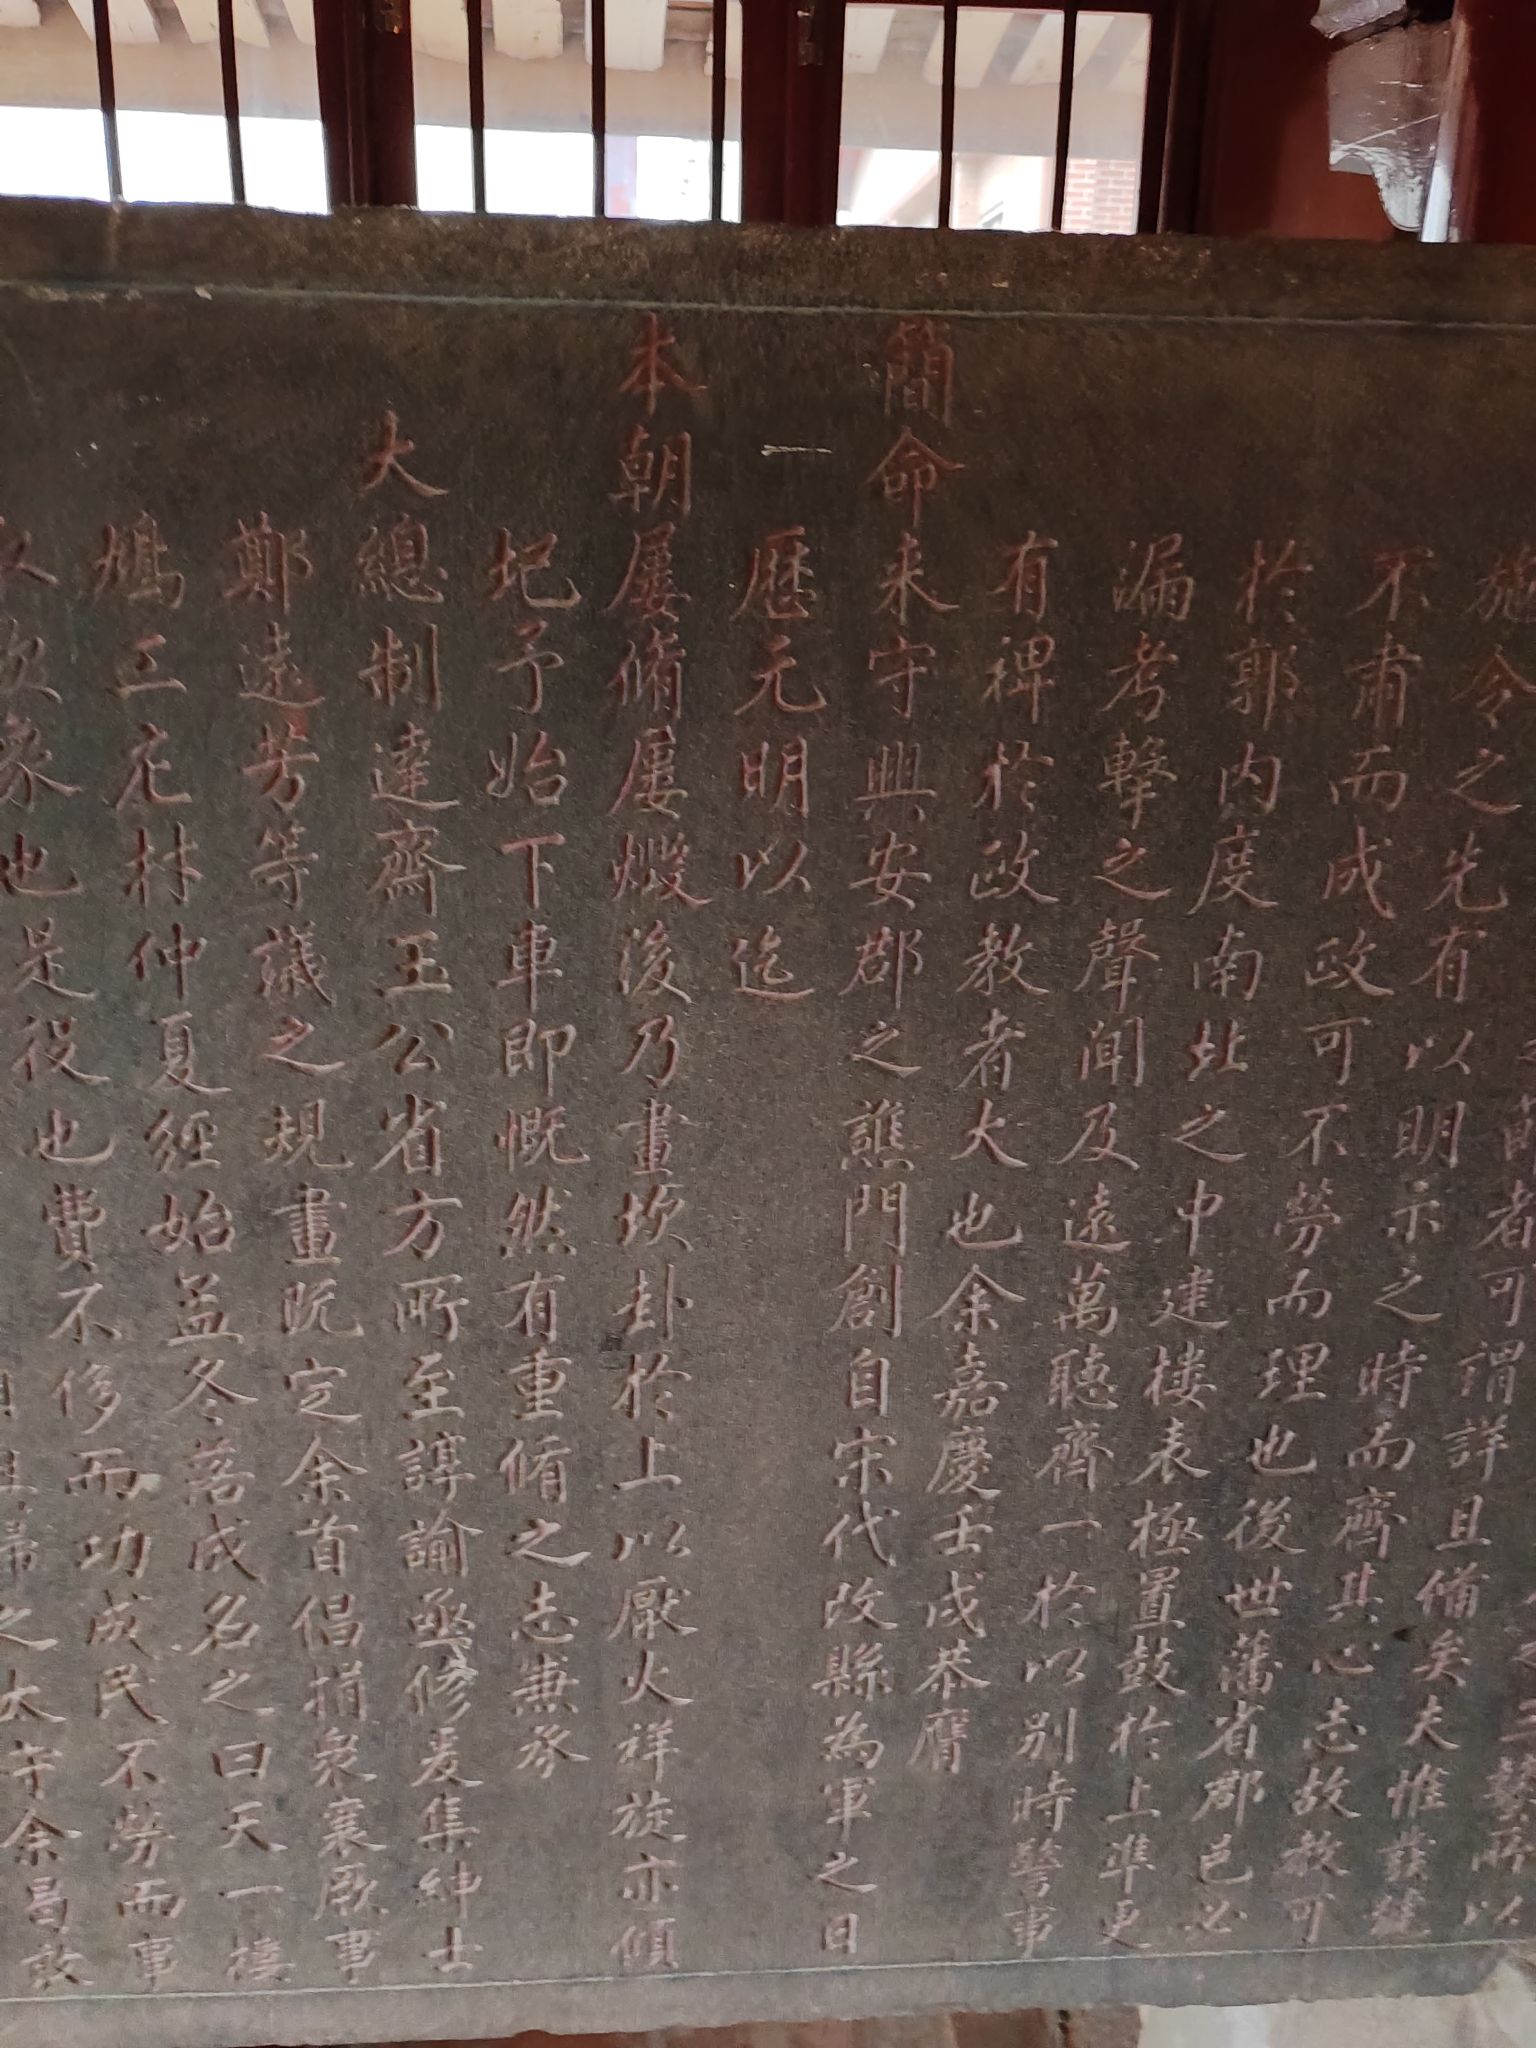 者可謂詳且備矣夫惟發
施令之先有以明示之時而齊其心志故教可
不肅而成政可不勞而理也後世藩省郡邑必
於郭內度南北之中建樓表極置鼓於上準更
漏考擊之聲聞及遠萬聽齊一於以別時警事
有裨於政教者大也余嘉慶壬戌恭膺
簡命来守興安郡之譙門創自宋代改縣為軍之日
歷元明以迄
本朝屢脩屢燬後乃畫坎卦於上以厭火祥旋亦傾
圮予始下車即慨然有重脩之志兼承
大總制達齋玉公省方所至諄諭亟修爰集紳士
鄭遠芳等議之規畫既定余首倡捐衆襄厥事
鳩工庀材仲夏經始孟冬落成名之曰天一樓
也是役也費不侈而功成民不勞而事
之太守余曷敢